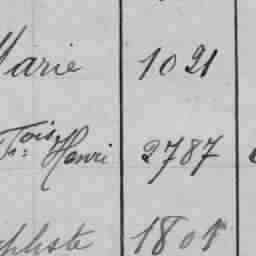 Marie 1021
Fçois Henri 2787
aptiste 1801